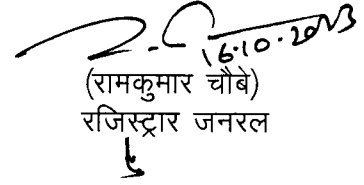 16.10.2013
(रामकुमार चौबे)
रजिस्ट्रार जनरल